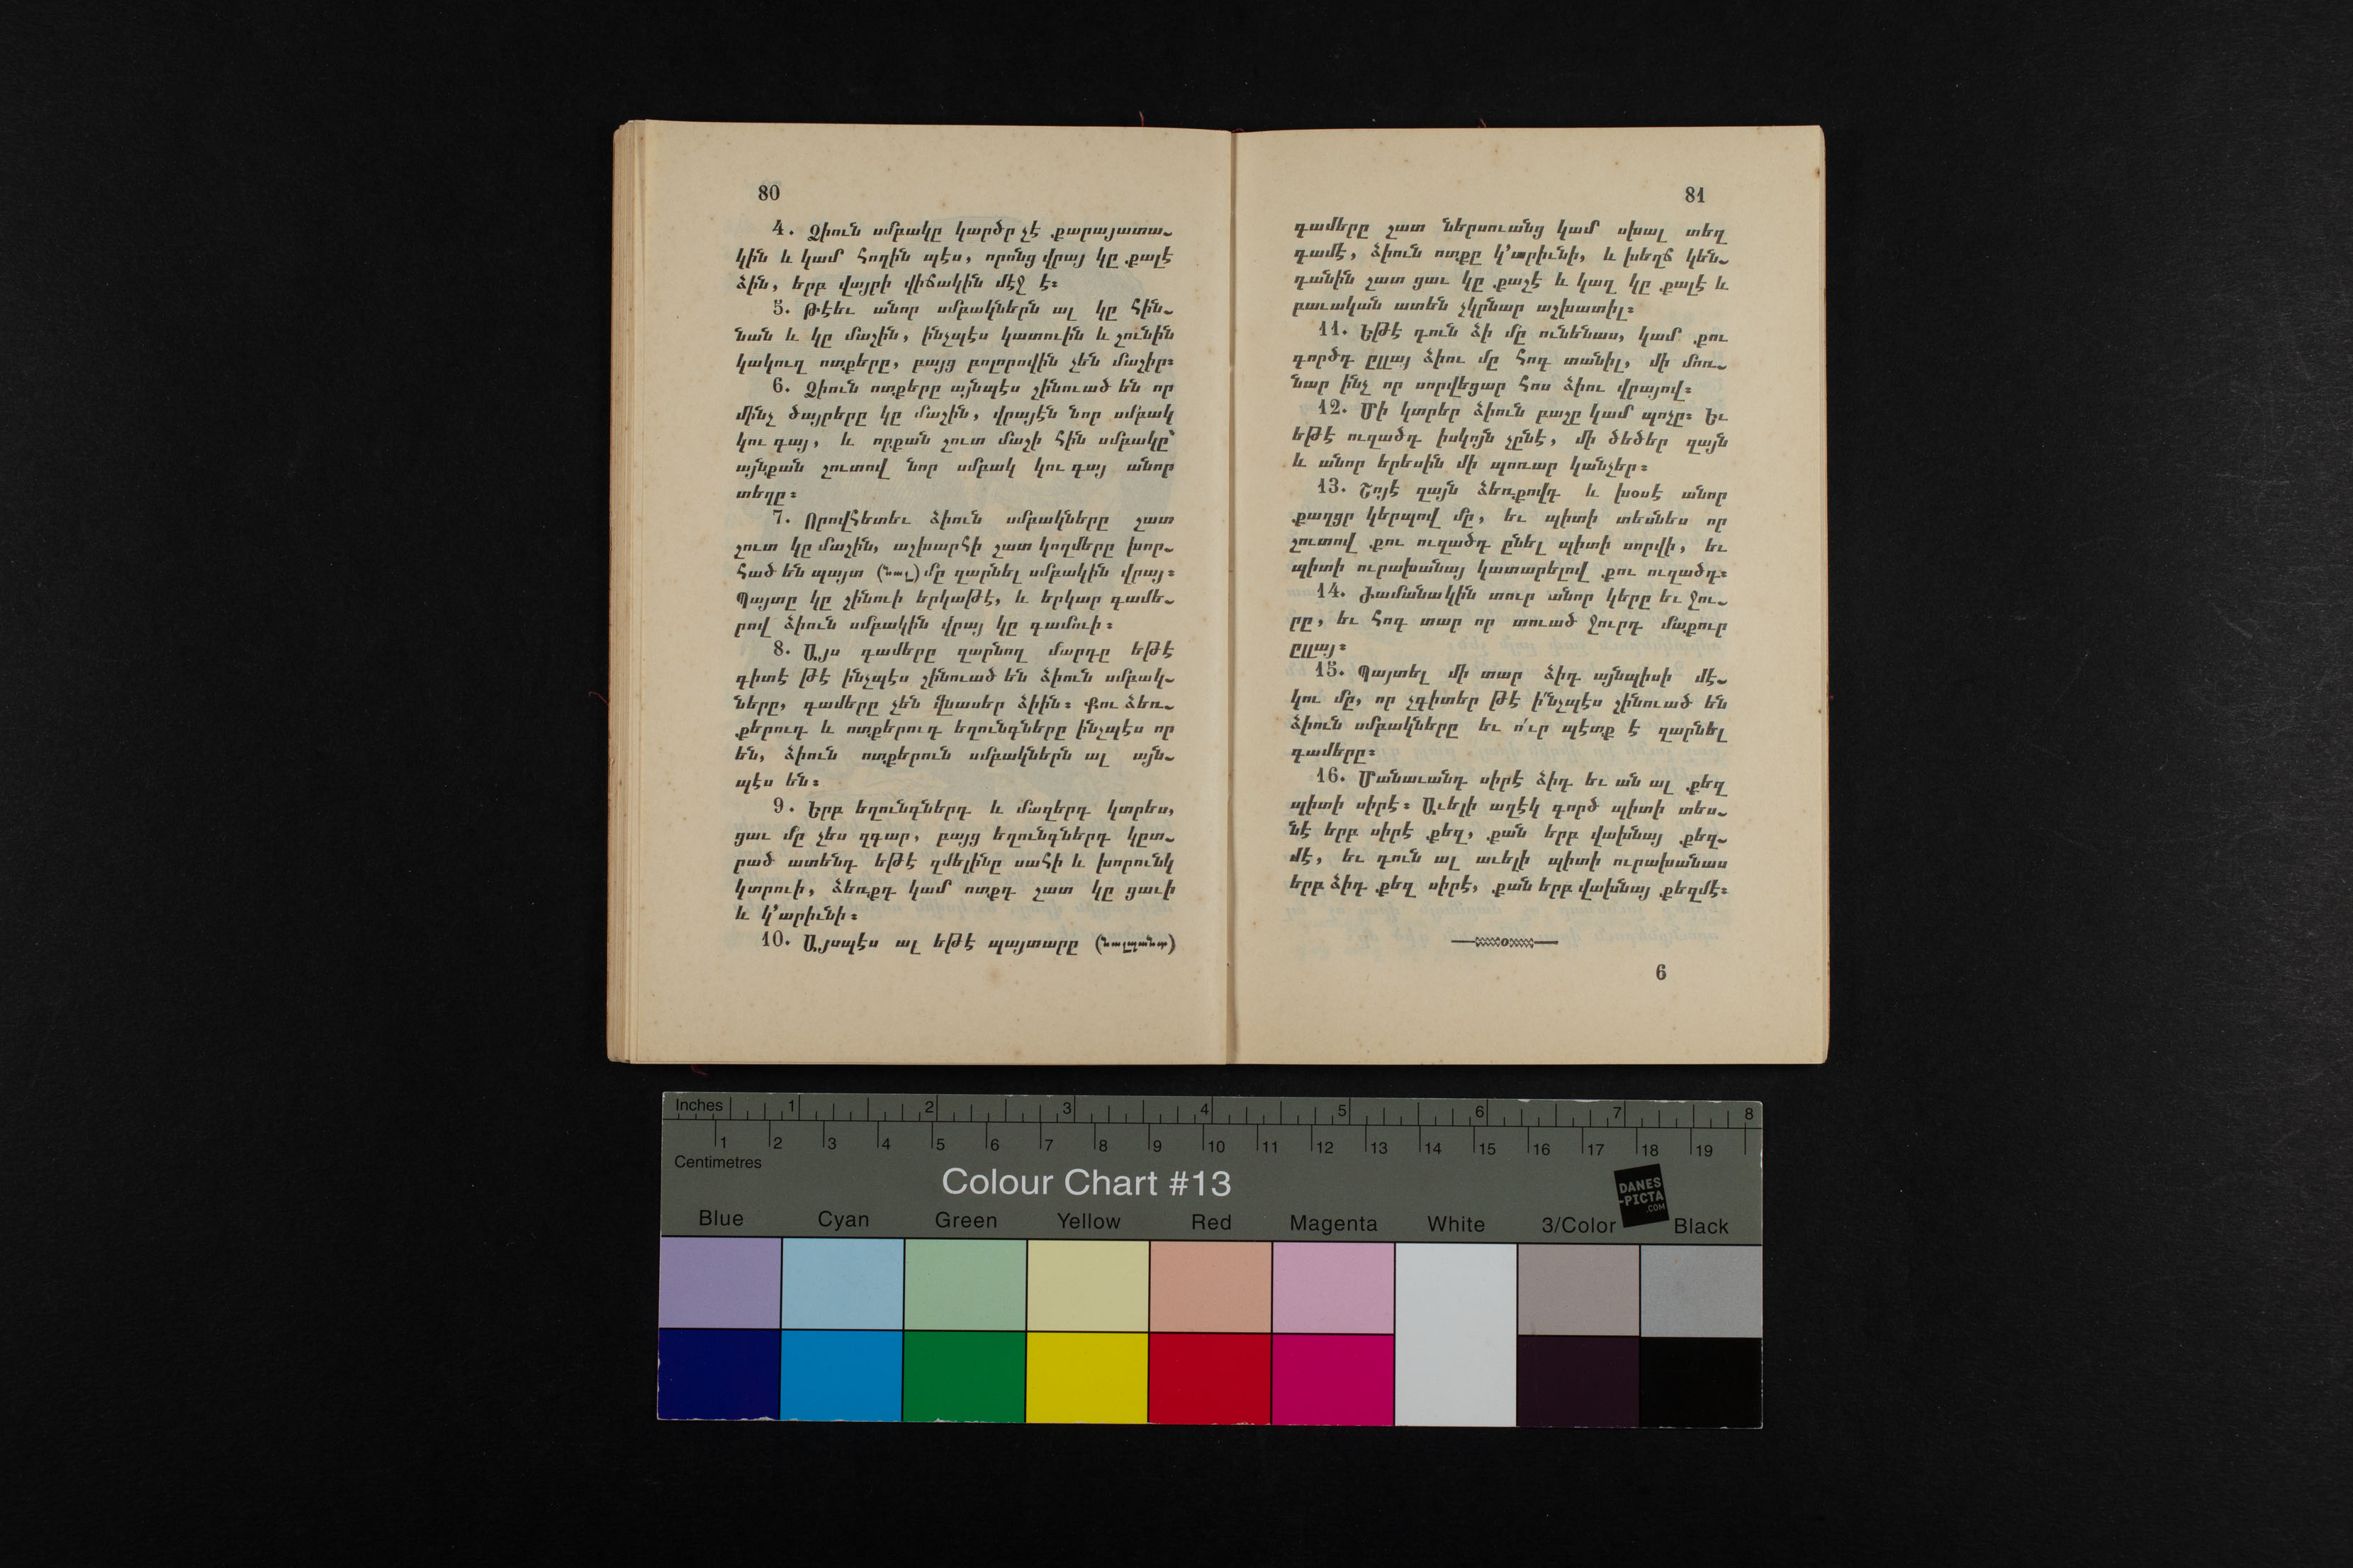 80
4. Ձիուն սմբակը կարծր չէ քարայատա֊
կին և կամ հողին պէս, որոնց վրայ կը քալէ
ձին, երբ վայրի վիճակին մէջ է։
5. Թէեւ անոր սմբակներն ալ կը հին֊
նան և կը մաշին, ինչպէս կատուին և շունին
կակուղ ոտքերը, բայց բոլորովին չեն մաշիր։
6. Ձիուն ոտքերը այնպէս շինուած են որ
մինչ ծայրերը կը մաշին, վրայէն նոր սմբակ
կու գայ, և որքան շուտ մաշի հին սմբակը՝
այնքան շուտով նոր սմբակ կու գայ անոր
տեղը։
7. Որովհետեւ ձիուն սմբակները շատ
շուտ կը մաշին, աշխարհի շատ կողմերը խոր֊
հած են պայտ (նալ) մը զարնել սմբակին վրայ։
Պայտը կը շինուի երկաթէ, և երկար գամե֊
րով ձիուն սմբակին վրայ կը գամուի։
8. Այս գամերը զարնող մարդը եթէ
գիտէ թէ ինչպէս շինուած են ձիուն սմբակ֊
ները, գամերը չեն վնասեր ձիին։ Քու ձեռ֊
քերուդ և ոտքերուդ եղունգները ինչպէս որ
են, ձիուն ոտքերուն սմբակներն ալ այն֊
պէս են։
9. Երբ եղունգներդ և մազերդ կտրես,
ցաւ մը չես զգար, բայց եղունգներդ կըտ֊
րած ատենդ եթէ զմելինը սահի և խորունկ
կտրուի, ձեռքդ կամ ոտքդ շատ կը ցաւի
և կ՚արիւնի։
10. Այսպէս ալ եթէ պայտարը (նալպանտ)
81
գամերը շատ ներսուանց կամ սխալ տեղ
գամէ, ձիուն ոտքը կ՚արիւնի, և խեղճ կեն֊
դանին շատ ցաւ կը քաշէ և կաղ կը քալէ և
բաւական ատեն չկրնար աշխատիլ։
11. Եթէ դուն ձի մը ունենաս, կամ քու
գործդ ըլլայ ձիու մը հոգ տանիլ, մի մոռ֊
նար ինչ որ սորվեցար հոս ձիու վրայով։
12. Մի կտրեր ձիուն բաշը կամ պոչը։ Եւ
եթէ ուզածդ իսկոյն չընէ, մի ծեծեր զայն
և անոր երեսին մի պոռար կանչեր։
13. Շոյէ զայն ձեռքովդ և խօսէ անոր
քաղցր կերպով մը, եւ պիտի տեսնես որ
շուտով քու ուզածդ ընել պիտի սորվի, եւ
պիտի ուրախանայ կատարելով քու ուզածդ։
14. Ժամանակին տուր անոր կերը եւ ջու֊
րը, եւ հոգ տար որ տուած ջուրդ մաքուր
ըլլայ։
15. Պայտել մի տար ձիդ այնպիսի մէ֊
կու մը, որ չգիտեր թէ ի՛նչպէս շինուած են
ձիուն սմբակները եւ ո՛ւր պէտք է զարնել
գամերը։
16. Մանաւանդ սիրէ ձիդ եւ ան ալ քեզ
պիտի սիրէ։ Աւելի աղէկ գործ պիտի տես֊
նէ երբ սիրէ քեզ, քան երբ վախնայ քեզ֊
մէ, եւ դուն ալ աւելի պիտի ուրախանաս
երբ ձիդ քեզ սիրէ, քան երբ վախնայ քեզմէ։
6
Inches 1 2 3 4 5 6 7 8
1 2 3 4 5 6 7 8 9 10 11 12 13 14 15 16 17 18 19
Centimetres
Colour Chart #13
DANES
-PICTA
.COM
Blue Cyan Green Yellow Red Magenta White 3/Color Black